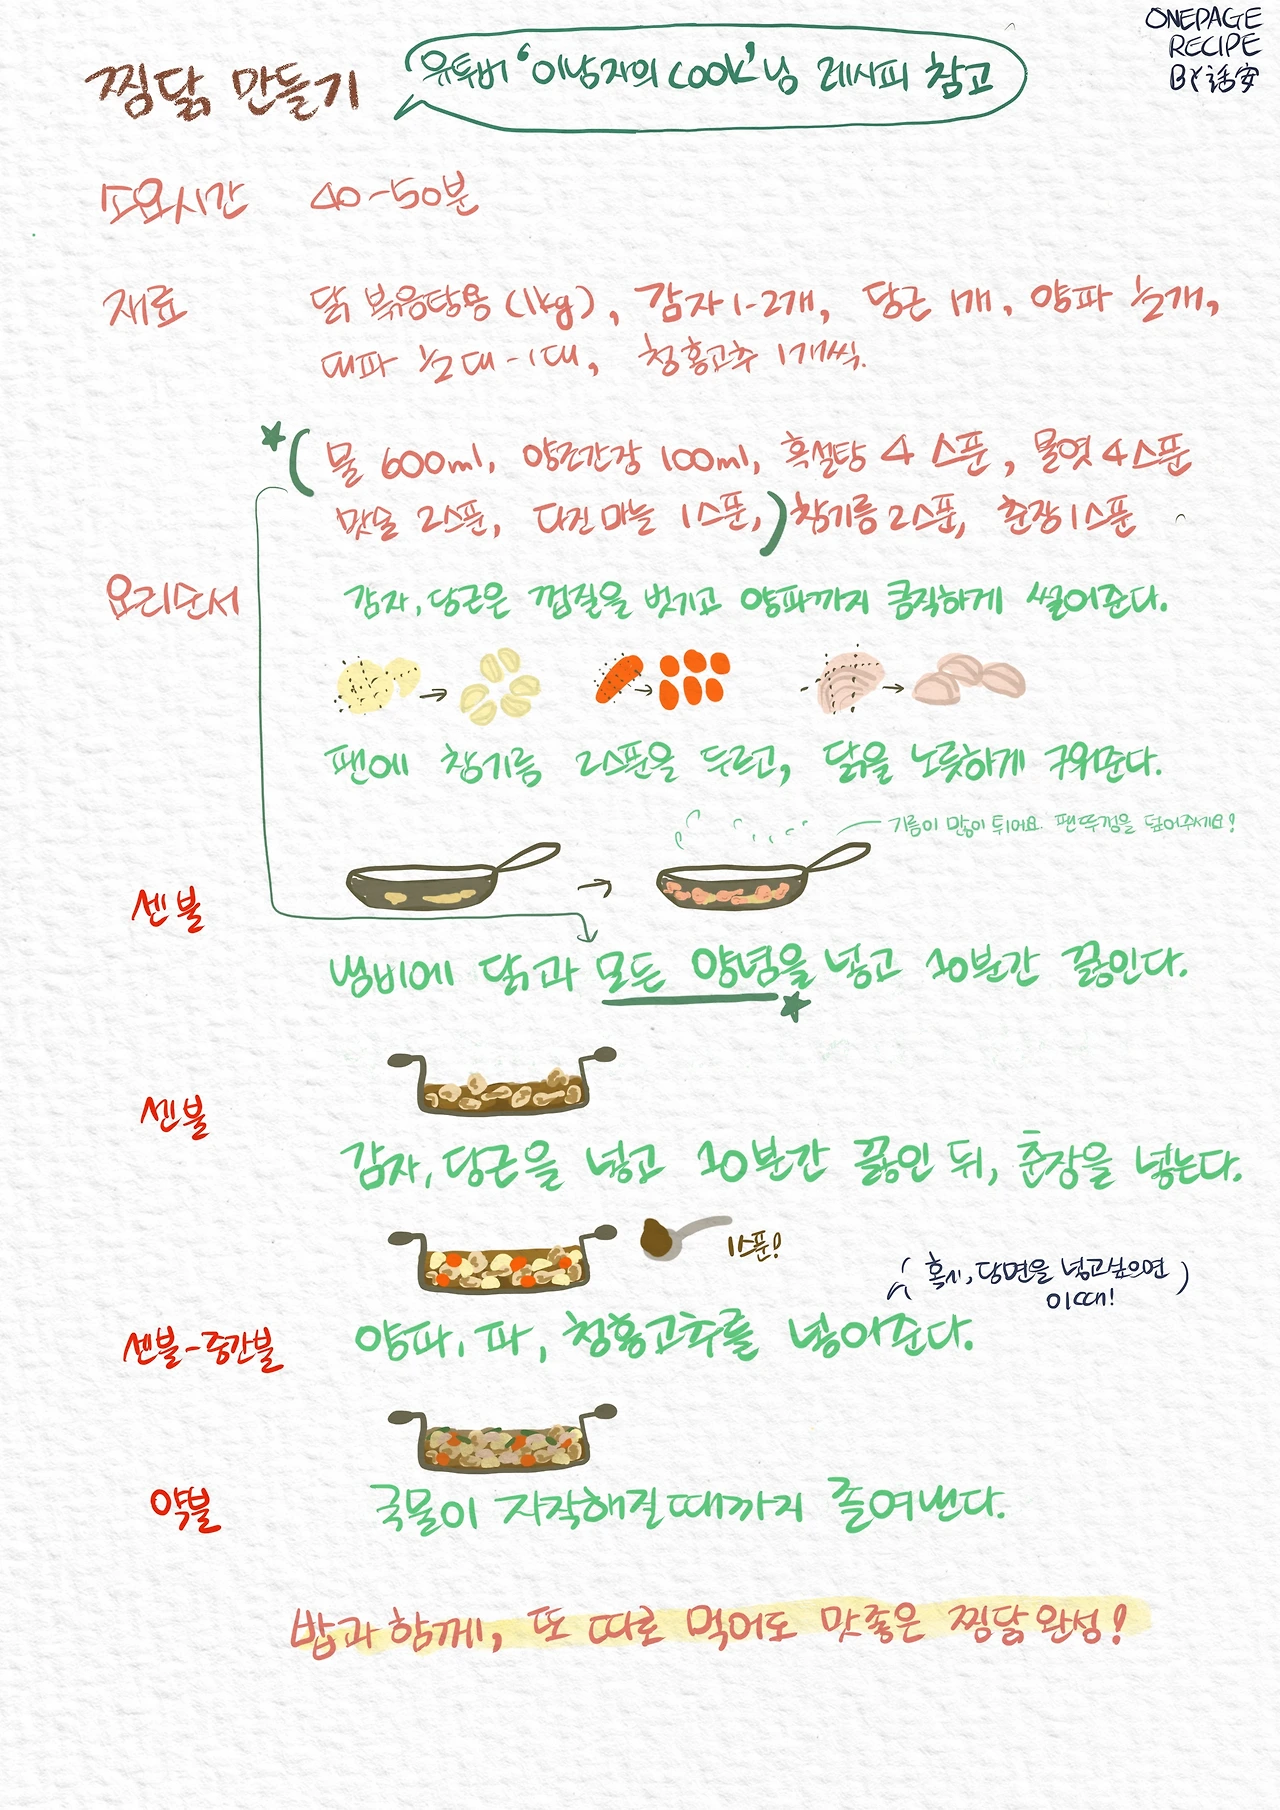 찜닭 만들기
유투버 '이남자의 cook'님 레시피 참고
ONEPAGE
RECIPE
BY 話安
소요시간 40-50분
재료 닭 볶음탕용 (1kg), 감자 1-2개, 당근 1개, 양파 ½개,
대파 ½대-1대, 청홍고추 1개씩.
★( 물 600ml, 양조간장 100ml, 흑설탕 4스푼, 물엿 4스푼
맛술 2스푼, 다진마늘 1스푼,) 참기름 2스푼, 춘장 1스푼
요리순서 감자, 당근은 껍질을 벗기고 양파까지 큼직하게 썰어준다.
팬에 참기름 2스푼을 두르고, 닭을 노릇하게 구워준다.
기름이 많이 튀어요. 팬뚜껑을 덮어주세요!
센불
냄비에 닭과 모든 양념을 넣고 10분간 끓인다.
★
센불
감자, 당근을 넣고 10분간 끓인 뒤, 춘장을 넣는다.
1스푼!
(혹시, 당면을 넣고싶으면
이때!)
센불-중간불 양파, 파, 청홍고추를 넣어준다.
약불 국물이 자작해질때까지 졸여낸다.
밥과 함께, 또 따로 먹어도 맛좋은 찜닭 완성!